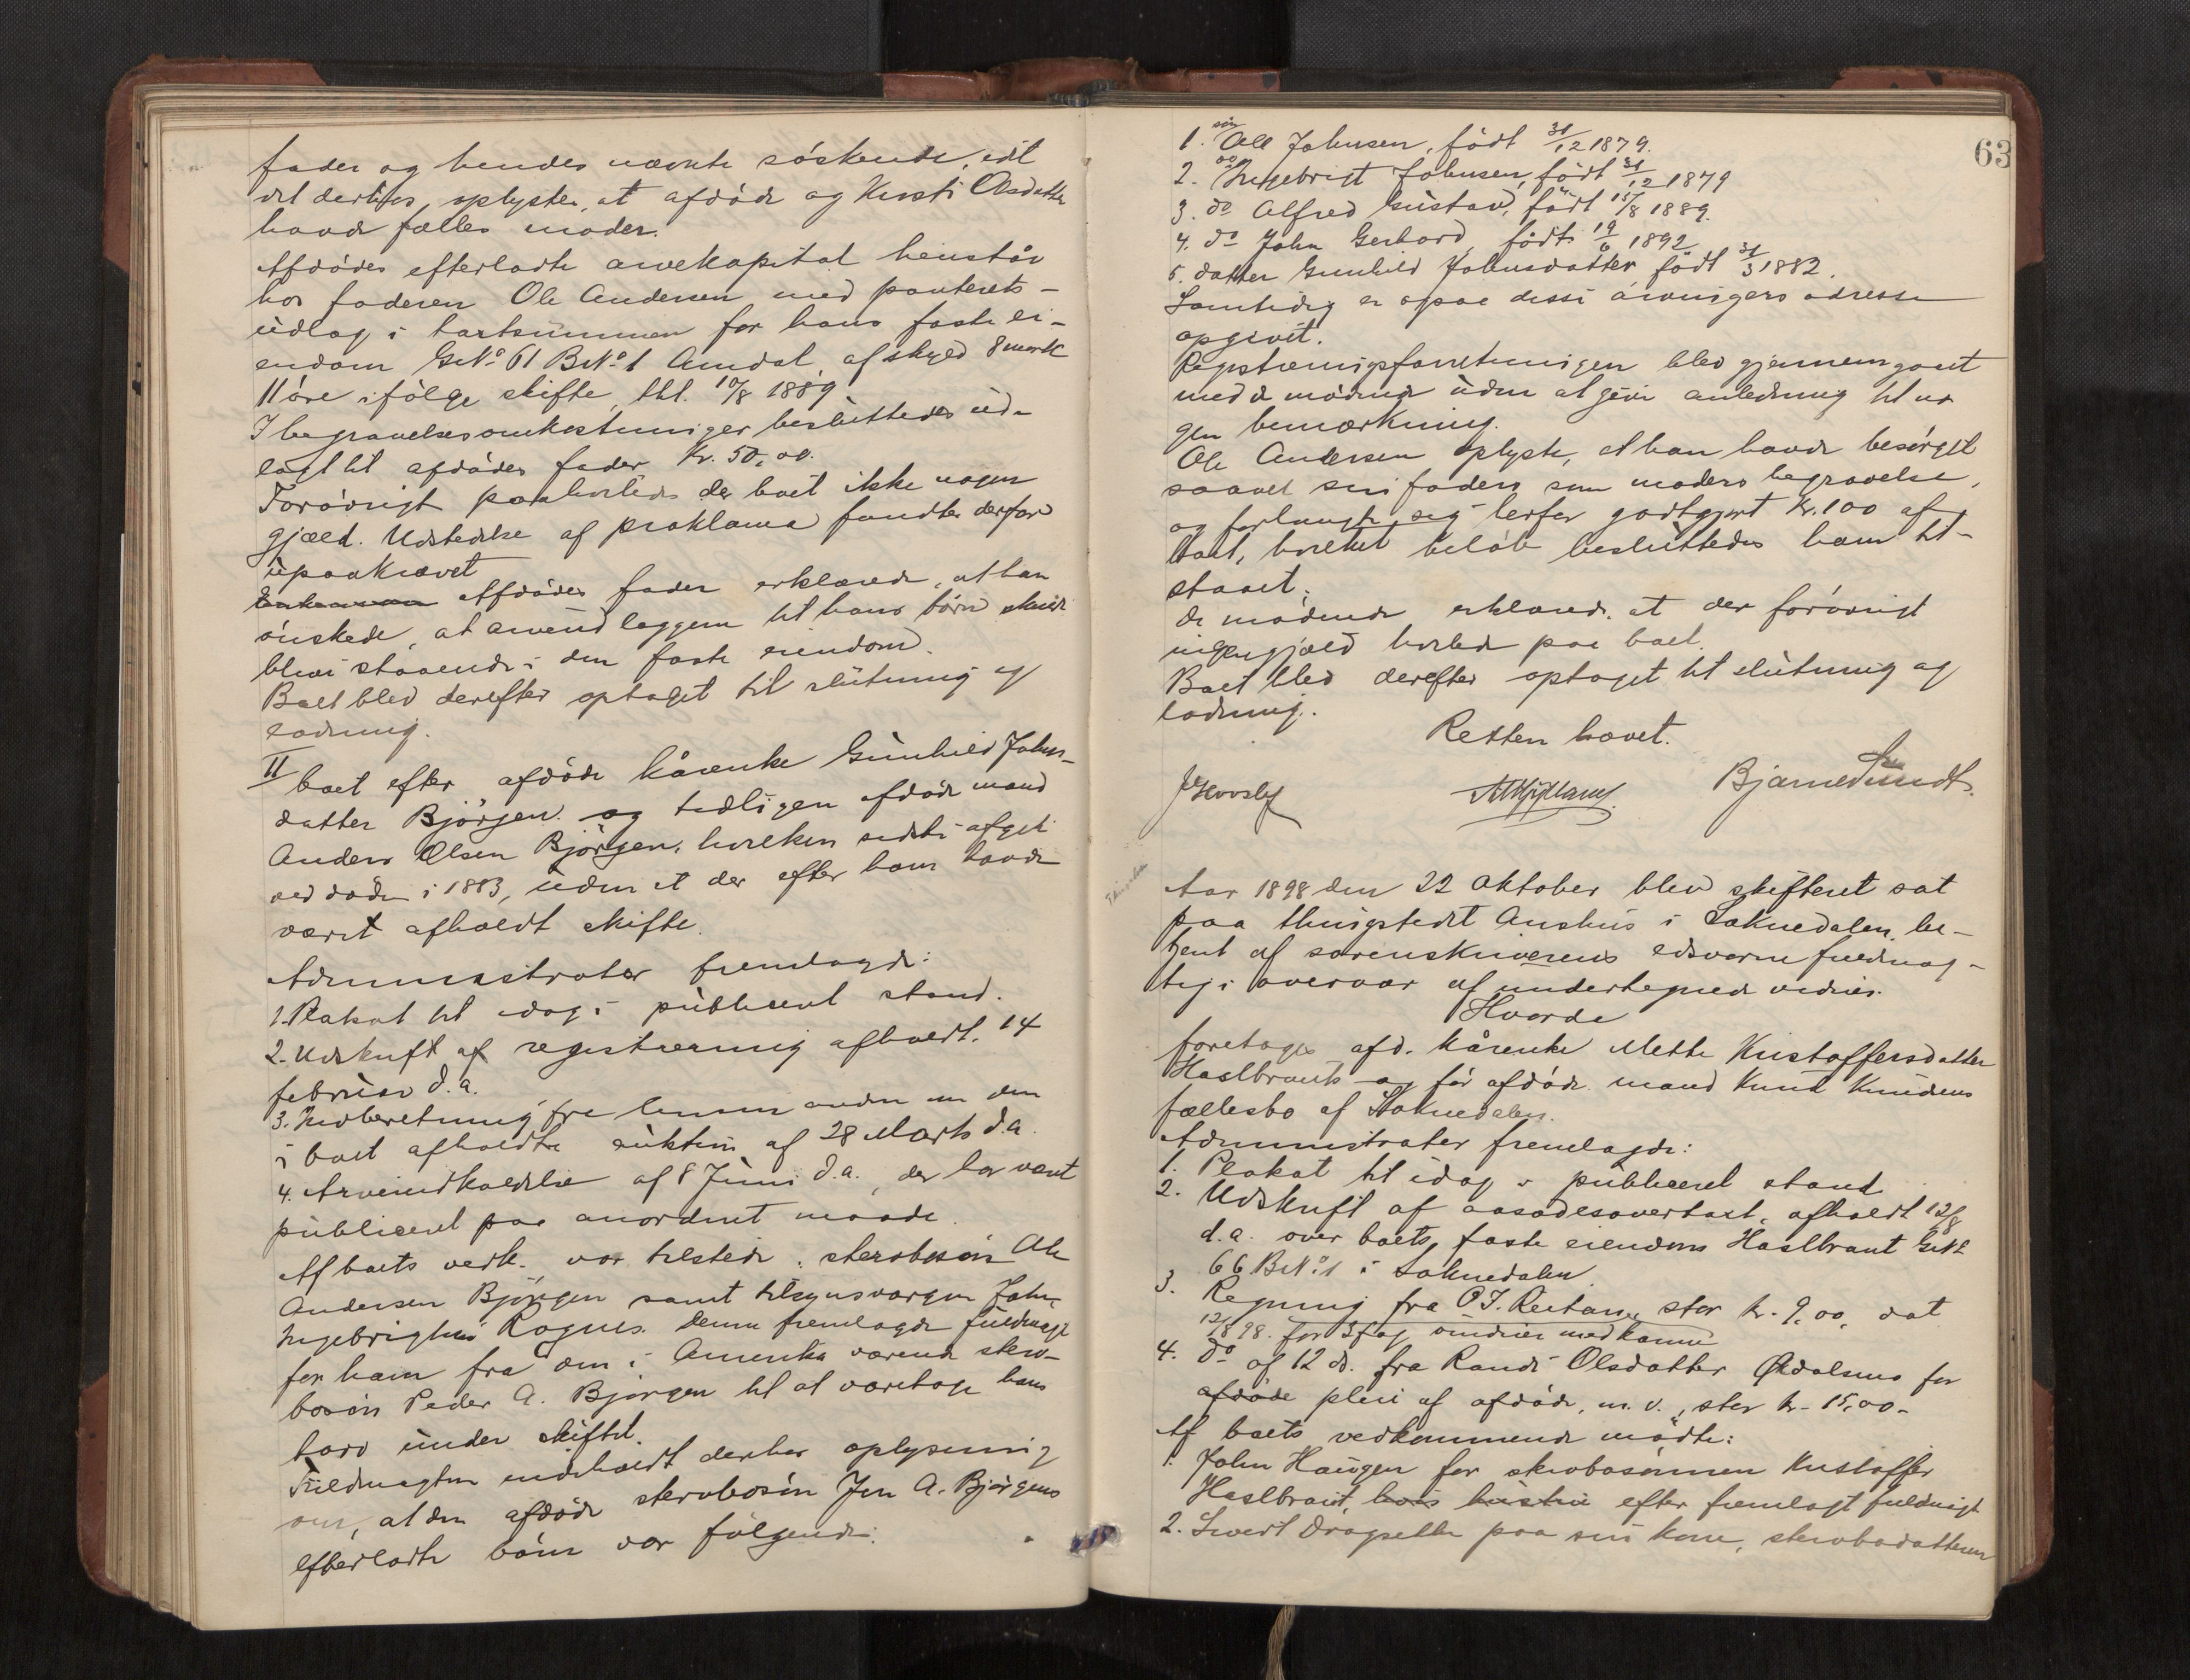 fader og hendes nævnte söskende, idet
det derhos oplystes, at afdöde og Kirsti Olsdatter
havde fælles moder.
Afdödes efterladte arvekapital henstår
hos faderen Ole Andersen med panterets-
udlag i taxtsummen for hans faste ei-
endom GrNo 61 BrNo 1 Amdal af skyld 8 mark
11 öre ifölge skifte, thl. 10/8 1889
I begravelsesomkostninger besluttedes ud-
lagt til afdödes fader Kr. 50,00.
Forövrigt paahvilede der boet ikke nogen
gjæld. Udstedelse af proklama fandtes derfor
upaakrævet
Afdödes fader erklærede, at han
önskede, at arveudlæggene til hans börn skulde
blive staaende i den faste eiendom.
Boet blev derefter optaget til slutning og
lodning.
II boet efter afdöde kårenke Gunhild Johns-
datter Björgen og tidligere afdöde mand
Anders Olsen Björgen, hvilken sidste afgik
ved döden i 1883, uden at der efter ham havde
været afholdt skifte.
Administrator fremlagde:
1. Plakat til idag i publiceret stand.
2. Udskrift af registrering afholdt 14
februar d.a.
3. Indberetning fra lensmanden om den
i boet afholdte auktion af 28 Marts d.a.
4. Arveindkaldelse af 8 Juni d.a., der har været
publiceret paa anordnet maade.
Af boets vedk. var tilstede: stervbosön Ole
Andersen Björgen samt tilsynsværgen John
Ingebrigtsen Rognes. Denne fremlagde fuldmagt
for ham fra den i Amerika værende sterv-
bosön Peder A. Björgen til at varetage hans
tarv under skiftet.
Fuldmagten indeholdt derhos oplysning
om, at den afdöde stervbosön Jon A. Björgens
efterladte börn var fölgende:
63
1. sön Ole Johnsen, födt 31/12 1879.
2. do Ingebrigt Johnsen, födt 31/12 1879
3. do Alfred Gustav, födt 15/8 1889.
4. do John Gerhard, födt 19/6 1892
5. datter Gunhild Johnsdatter födt 31/3 1882.
Samtidig er opgae disse arvingers adresse
opgivet.
Registreringsforretningen blev gjennemgaaet
med de mödende uden at give anledning til no
gen bemærkning.
Ole Andersen oplyste, at han havde besörget
saavel sin faders som moders begravelse,
og forlangte sig herfor godtgjort Kr. 100 af
boet, hvilket belöb besluttedes ham til-
staaet.
De mödende erklærede, at der forövrigt
ingen gjæld hvilede paa boet.
Boet blev derefter optaget til slutning og
lodning.
Retten hævet.
Bjarne Sundt.
Aar 1898 den 22 Oktober blev skifteret sat
paa thingstedet Aushus i Soknedalen, be-
tjent af sorenskriverens edsvorne fuldmæg-
tig i overvær af undertegnede vidner.
Hvorda
foretages afd. kårenke Mette Kristoffersdatter
Haslbrauts og för afdöde mand Knud Knudsens
fællesbo af Soknedalen.
Administrator fremlagde:
1. Plakat til idag i publiceret stand
2. Udskrift af aasædesovertaxt, afholdt 12/8
d.a. over boets faste eiendom Haslbraut GrNo
66 BrNo 1 i Soknedalen.
3. Regning fra O J. Reitan, stor kr. 9,00, dat
12/8 98. for 3 fag vinduer med karme
4. do af 12 ds. fra Randi Olsdatter Ødalsmo for
afdöde pleie af afdöde, m.v., stor kr. 15,00.
Af boets vedkommende mödte:
1. John Haugen for stervbosönnen Kristoffer
Haslbraut, hvis hustru efter fremlagt fuldmagt
2. Sivert Drogsetter paa sin kone, stervbodatteren